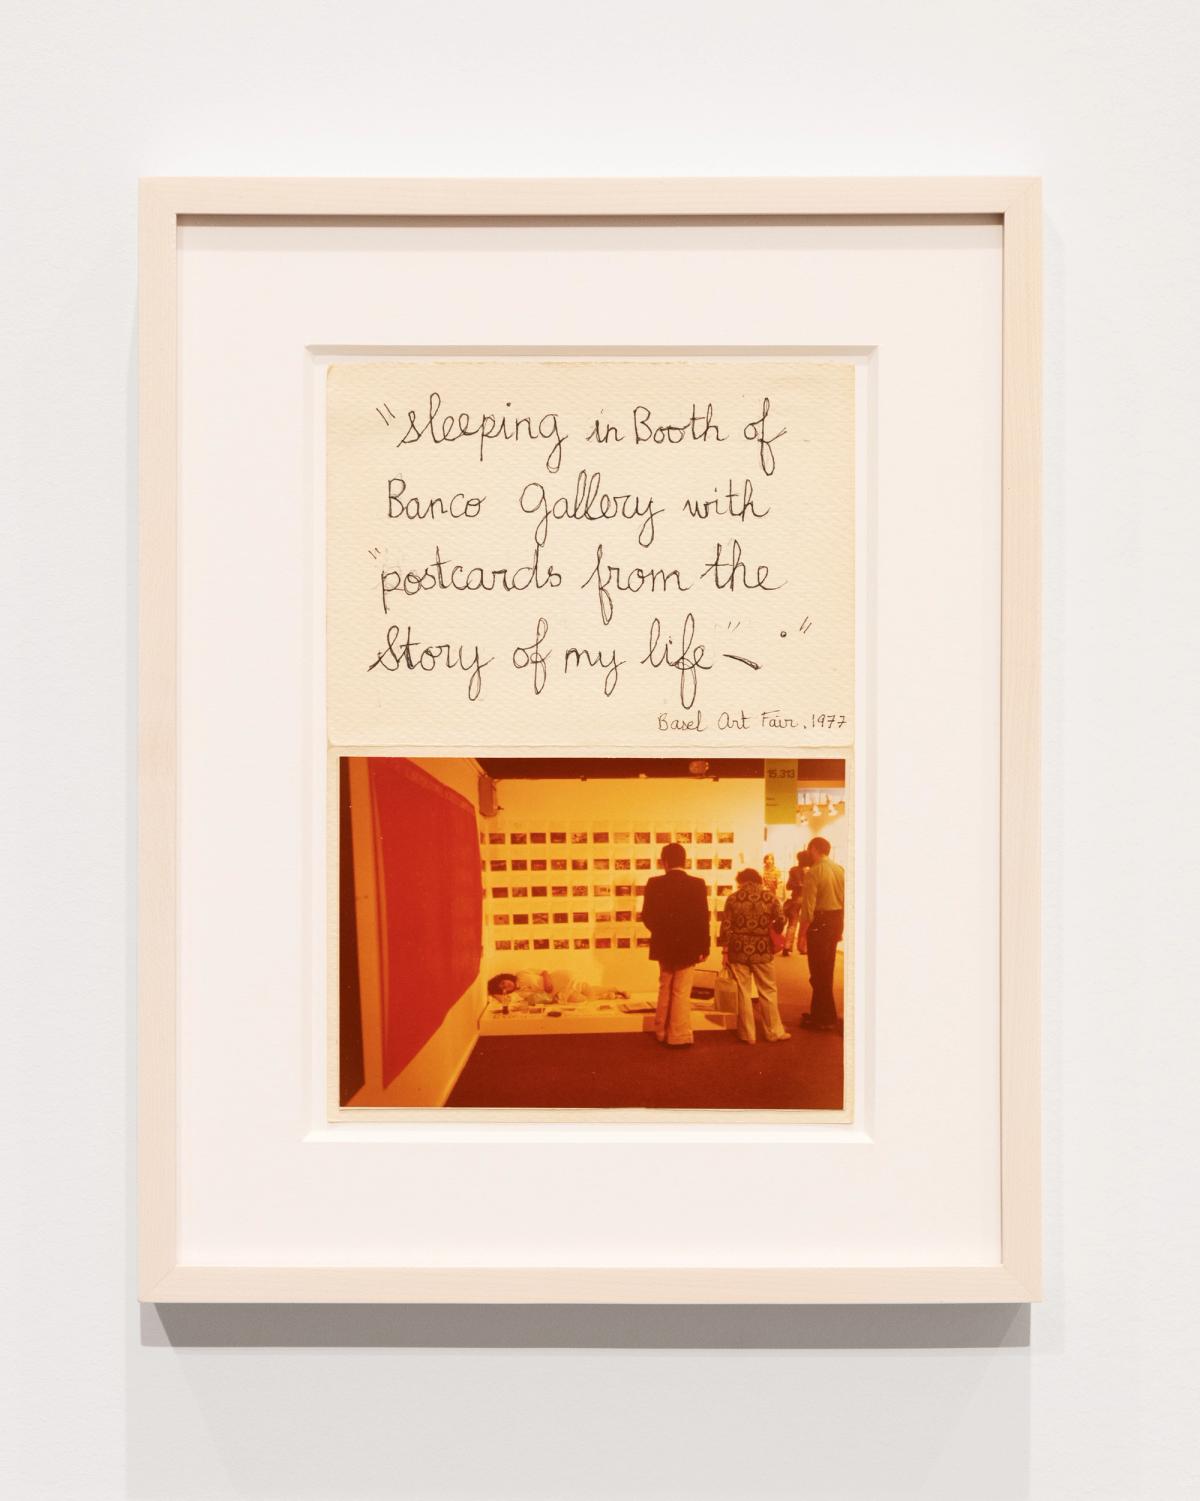 "sleeping in Booth of
Banco Gallery with
"postcards from the
Story of my life" — ."
Basel Art Fair. 1977
15.313